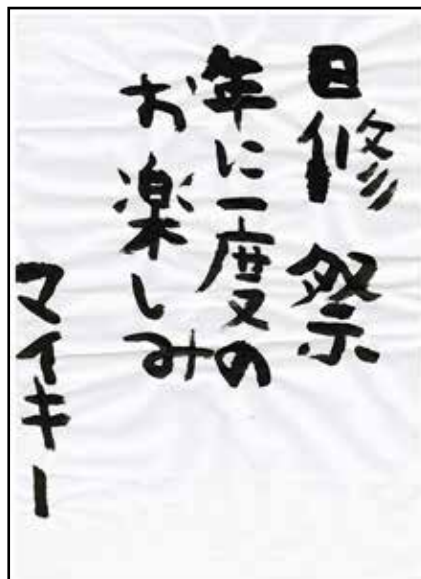 日修祭
年に一度の
お楽しみ
マイキー